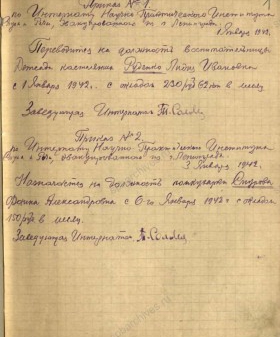 Приказ № 1.
по Интернату Научно Практического Института
эвакуированного из г. Ленинграда
1 Января 1942.
Переводится на должность воспитательницы
Детсада кастелянша Лидия Ивановна
с 1 Января 1942г. с окладом 230 руб 62 коп в месяц
Заведующая Интернатом
Приказ № 2
по Интернату Научно Практического Института
эвакуированного из г. Ленинграда
3 Января 1942.
Назначается на должность
Александровна с 6-го Января 1942 г с окладом
150 руб в месяц.
Заведующая Интерната